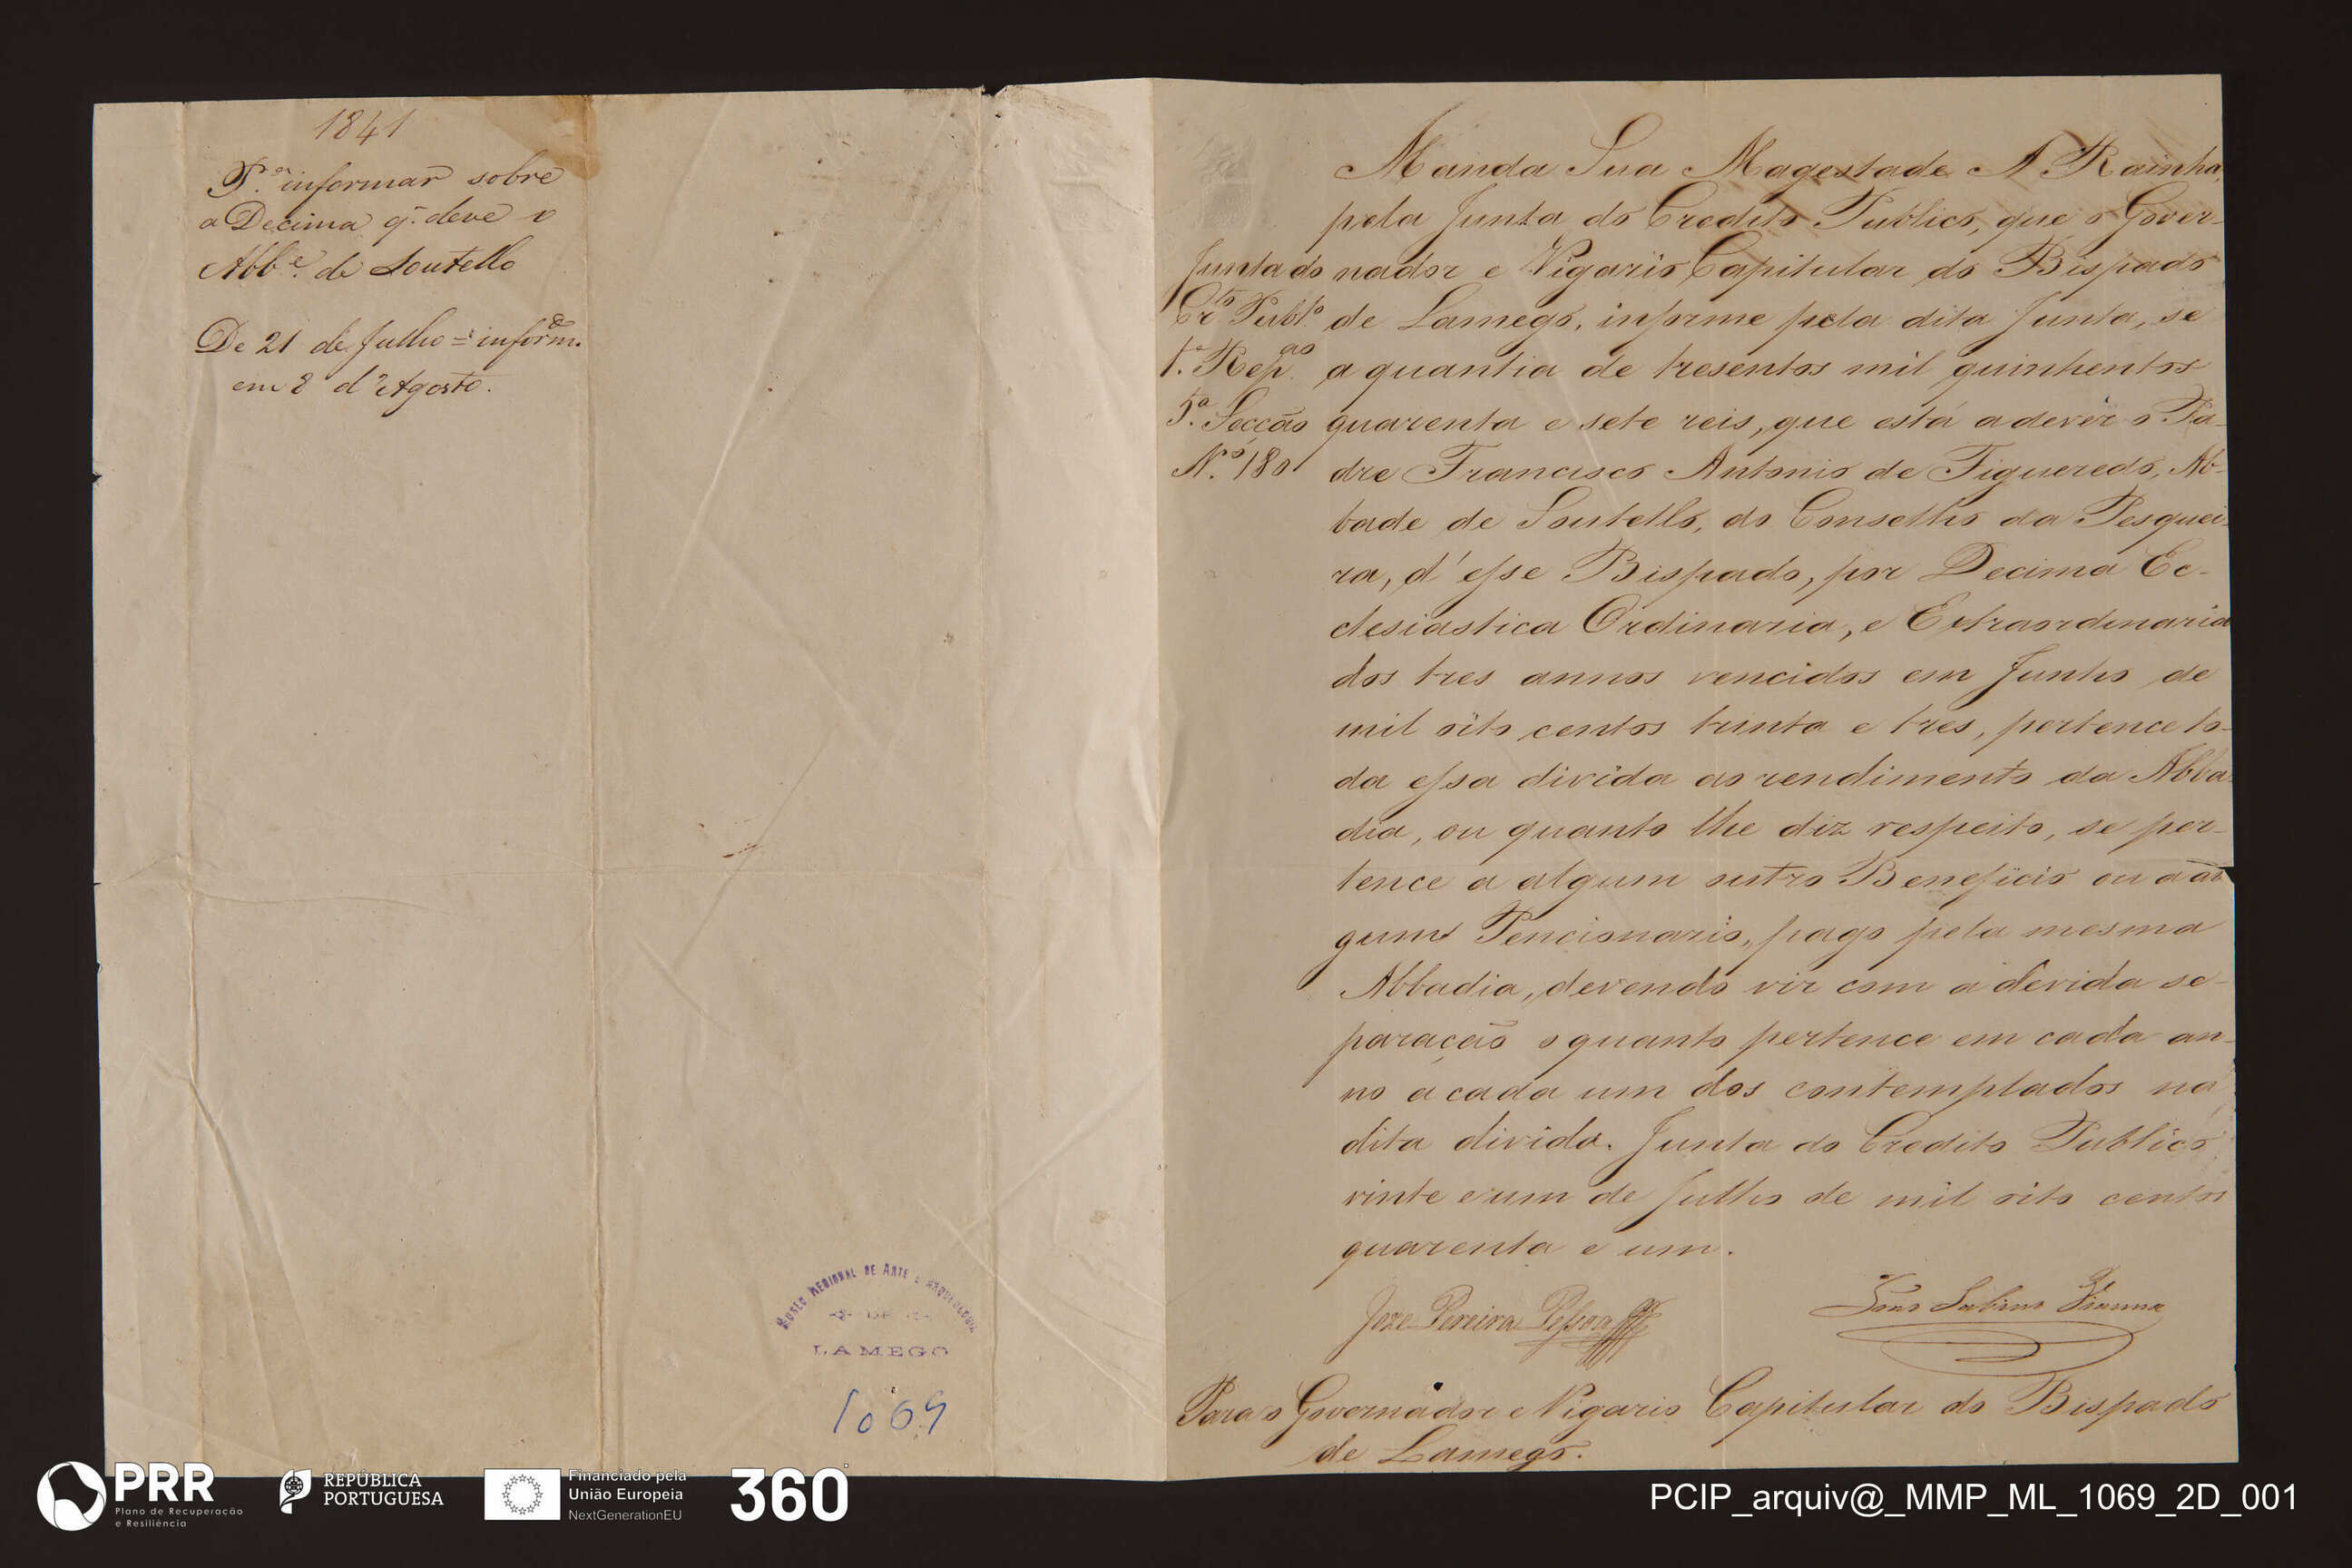 1841
P.ª informar sobre
a Decima q. deve o
Abb.e de Soutello
De 21 de Julho = inform.
em 8 d'Agosto.
MUSEU REGIONAL DE ARTE E ARQUEOLOGIA
DE
LAMEGO
1069
Manda Sua Magestade A Rainha,
pela Junta do Credito Publico, que o Gover-
nador e Vigario Capitular do Bispado
de Lamego, informe pela dita Junta, se
a quantia de tresentos mil quinhentos
quarenta e sete reis, que está a devêr o Pa-
dre Francisco Antonio de Figueredo, Ab-
bade de Soutello, do Conselho da Pesquei-
ra, d'esse Bispado, por Decima Ec-
clesiastica Ordinaria, e Extraordinaria
dos tres annos vencidos em Junho de
mil oito centos trinta e tres, pertence to-
da essa divida ao rendimento da Abba-
dia, ou quanto lhe diz respeito, se per-
tence a algum outro Beneficio ou a al-
gum Pencionario, pago pela mesma
Abbadia, devendo vir com a devida se-
paração o quanto pertence em cada an-
no a cada um dos contemplados na
dita divida. Junta do Credito Publico
vinte e um de Julho de mil oito centos
quarenta e um.
Junta do
Cr.to Publ.o
1.ª Rep.ao
5.ª Secção
N.º 180
Joze Pereira Pessoa
Sabino Vianna
Para o Governador e Vigario Capitular do Bispado
de Lamego.
PRR
Plano de Recuperação
e Resiliência
REPÚBLICA
PORTUGUESA
Financiado pela
União Europeia
NextGenerationEU
360°
PCIP_arquiv@_MMP_ML_1069_2D_001